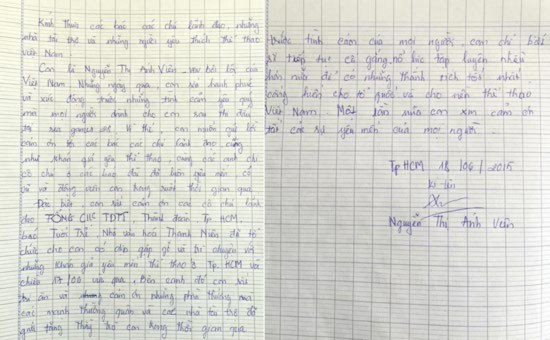 Kính Thưa các bác các chú lãnh đạo, những
nhà tài trợ và những người yêu thích thể thao
Việt Nam.
Con là Nguyễn Thị Ánh Viên, vđv bơi lội của
Việt Nam. Những ngày qua, con rất hạnh phúc
và xúc động trước những tình cảm yêu quý
mà mọi người dành cho con sau thi đấu
tại sea games 28. Vì thế, con muốn gửi lời
cảm ơn tới các bác các chú lãnh đạo cũng
như khán giả yêu thể thao, cùng các anh chị
cô chú ở các báo đài đã luôn yêu mến cổ
vũ và động viên con trong suốt thời gian qua.
Đặc biệt con rất cảm ơn các chú lãnh
đạo TỔNG CỤC TDTT, Thành đoàn Tp HCM,
báo Tuổi Trẻ, Nhà văn hoá Thanh Niên đã tổ
chức cho con có dịp gặp gỡ và trò chuyện với
những khán giả yêu mến thể thao ở Tp. HCM vào
chiều 17/06 vừa qua. Bên cạnh đó con rất
tri ân và cảm ơn những phần thưởng mà
các mạnh thường quân và các nhà tài trợ đã
gửi tặng thầy trò con trong thời gian qua
trước tình cảm của mọi người, con chỉ biết
sẽ tiếp tục cố gắng, nỗ lực tập luyện nhiều
hơn nữa để có những thành tích tốt nhất
cống hiến cho tổ quốc và cho nền thể thao
Việt Nam. Một lần nữa con xin cảm ơn
tất cả sự yêu mến của mọi người.
Tp HCM 18/06/2015
kí tên
Nguyễn Thị Ánh Viên